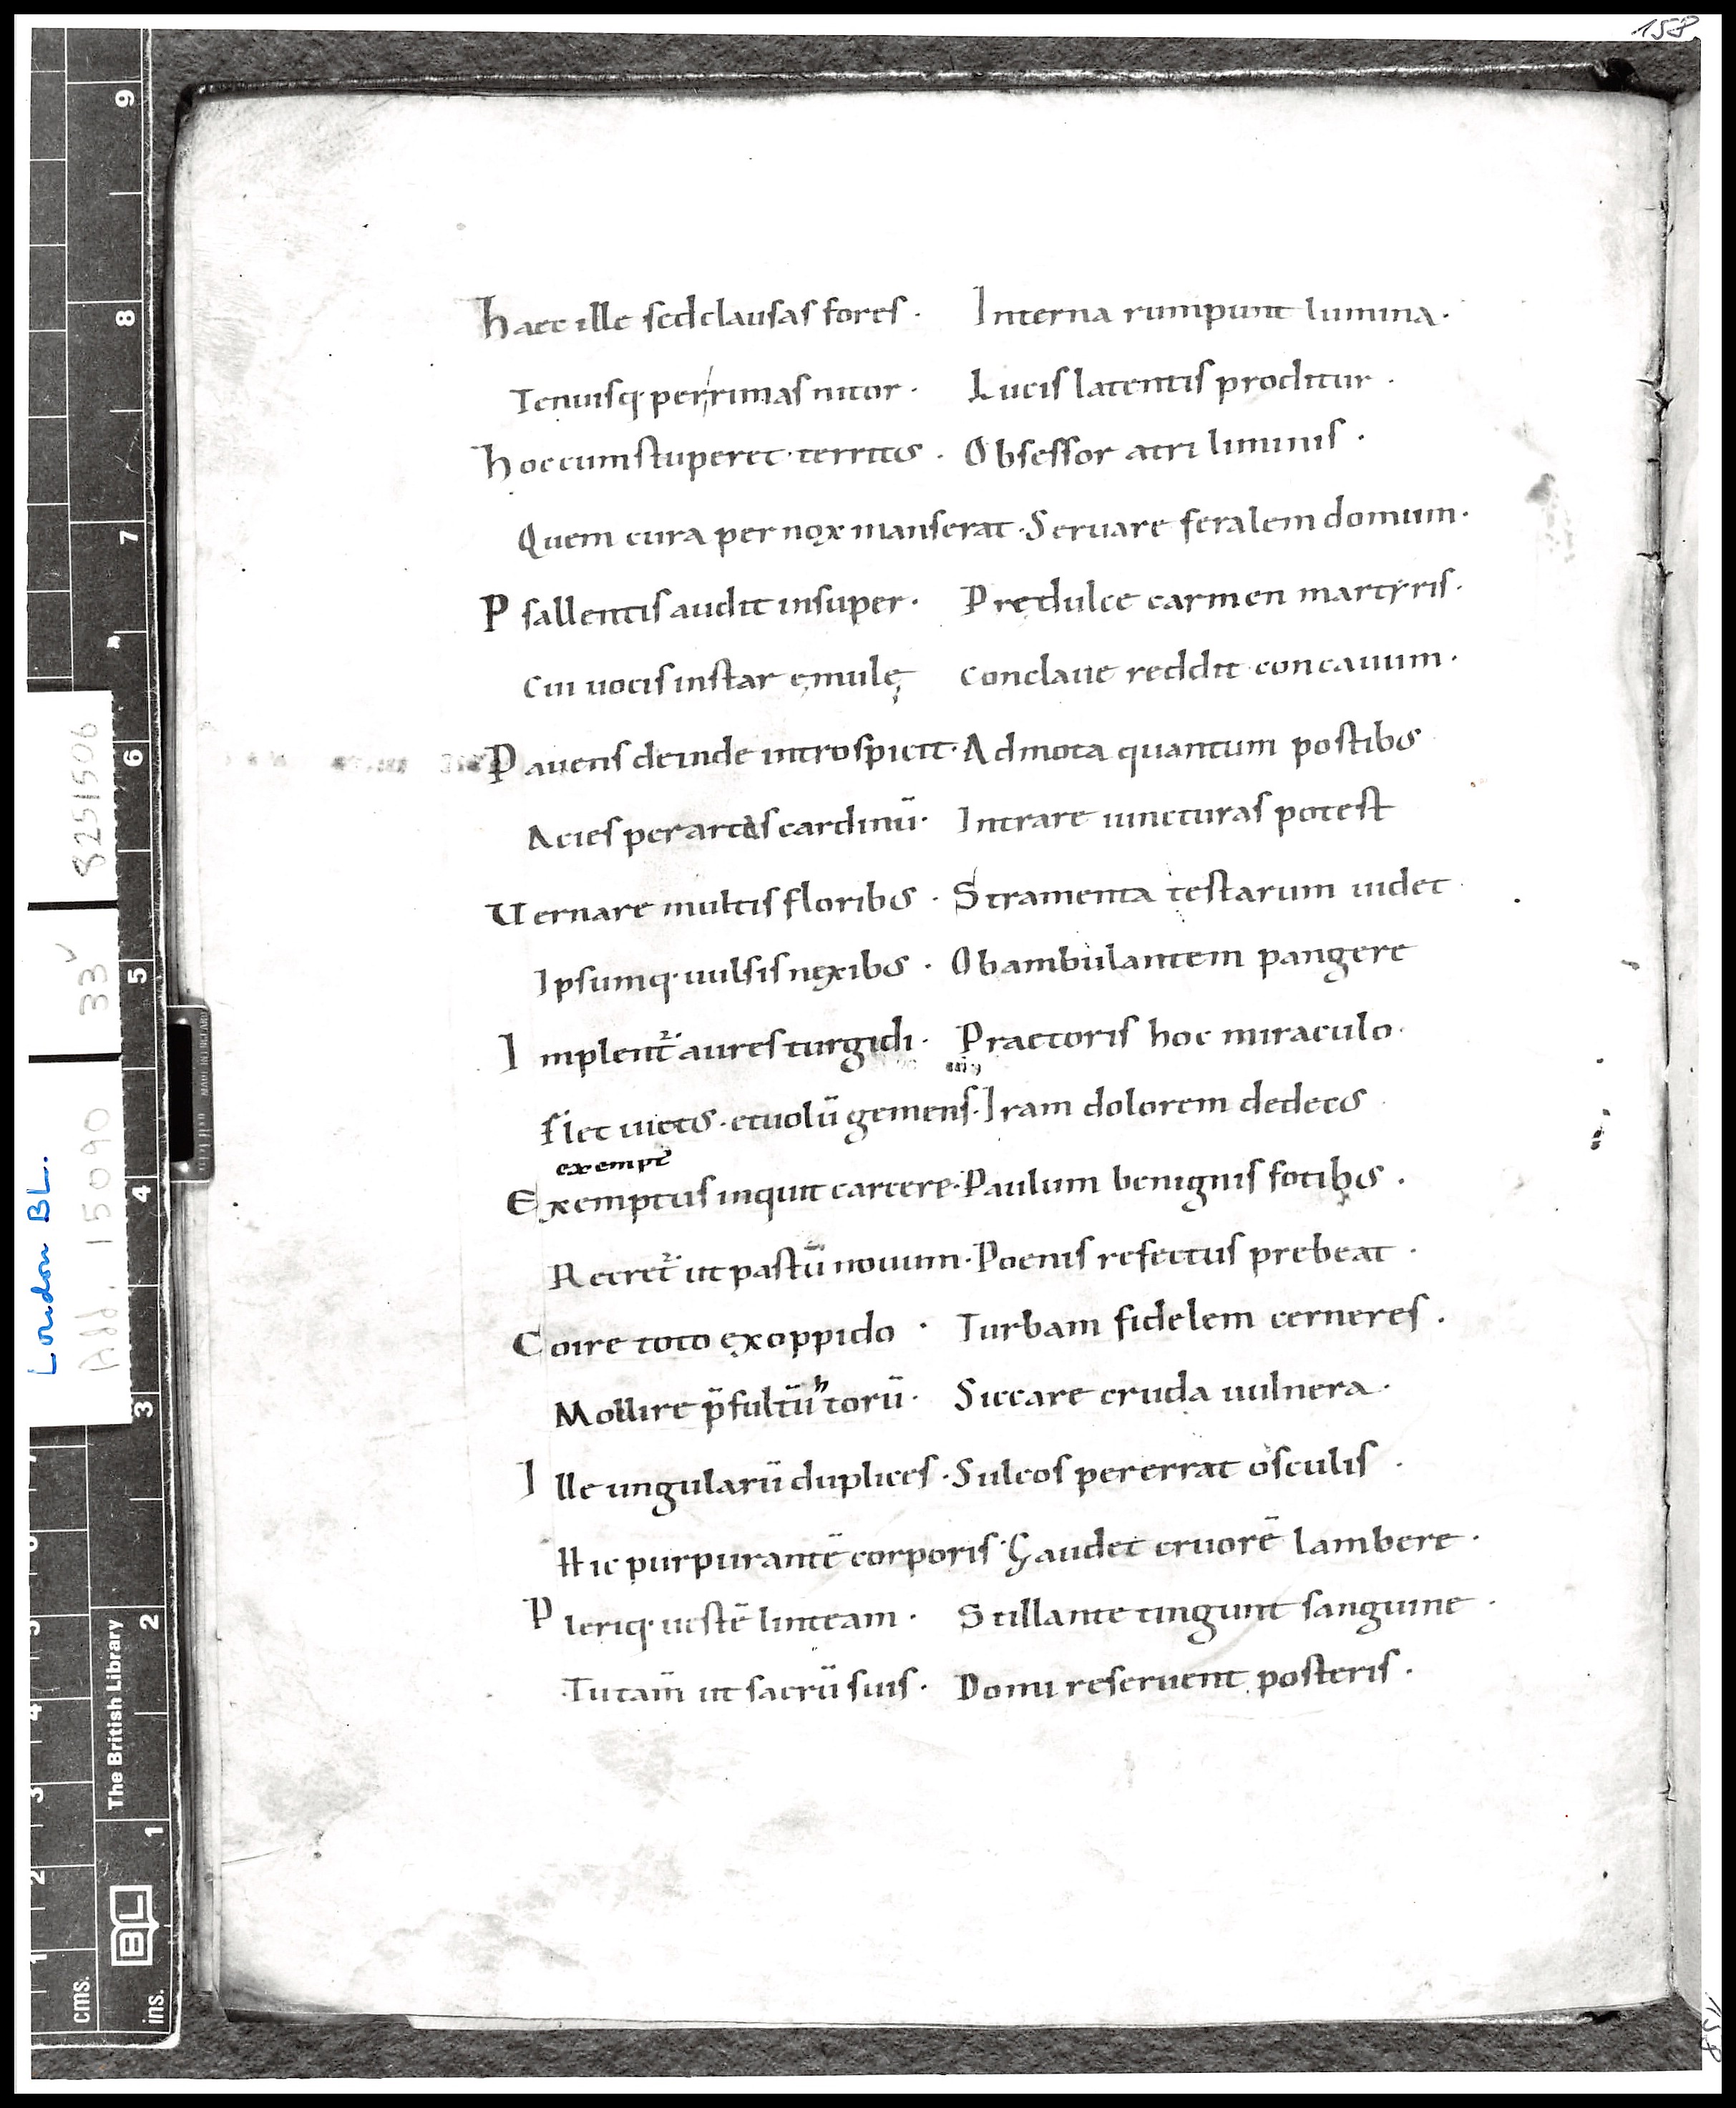 158
haec ille sed clausas fores · Interna rumpunt lumina ·
Tenuisq· per rimas nitor · Lucis latentis proditur ·
hoc cum stuperet · territus · Obsessor atri liminis ·
Quem cura per nox manserat · Seruare feralem domum ·
Psallentis audit insuper · Predulce carmen martyris ·
Cui uocis instar ęmulę Conclaue reddit concauum ·
Pauens deinde introspicit · Admota quantum postibus
Acies per artas cardinū · Intrare iuncturas potest
Uernare multis floribus · Stramenta testarum uidet
Ipsumq· uulsis nexibus · Obambulantem pangere
Implent̄ aures turgidi · Praetoris hoc miraculo ·
Flet uictus · et uolū gemens · Iram dolorem dedecus
exempt̄
Exemptus inquit carcere · Paulum benignis fotibus ·
Recret̄ ut pastū nouum · Poenis refectus prebeat ·
Coire toto ex oppido · Turbam fidelem cerneres ·
Mollire p̄fultū h torū · Siccare cruda uulnera ·
Ille ungularū duplices · Sulcos pererrat osculis ·
Hic purpurantē corporis · Gaudet cruorē lambere ·
Pleriq· uestē linteam · Stillante tingunt sanguine ·
Tutam̄ ut sacrū suis · Domi reseruent posteris ·
London BL.
Add. 15090 33v 8251506
The British Library
BL
cms.
ins.
1 2 3 4 5 6 7 8 9
158